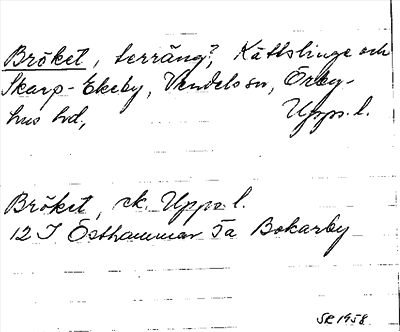 Bröket, terräng?, Kättslinge och
Skarp-Ekeby, Vendels sn, Örby-
hus hd, Upps. l.
Bröket, ek. Upps. l.
12 I Östhammar 5a Bokarby
SR 1958